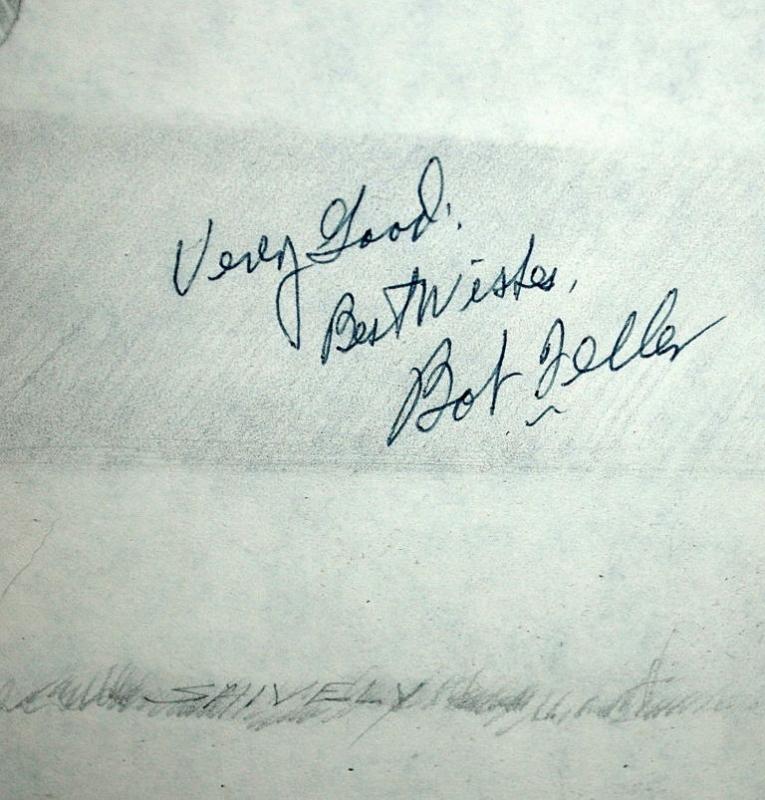 Very Good.
Best Wishes,
Bob Feller
SHIVELY